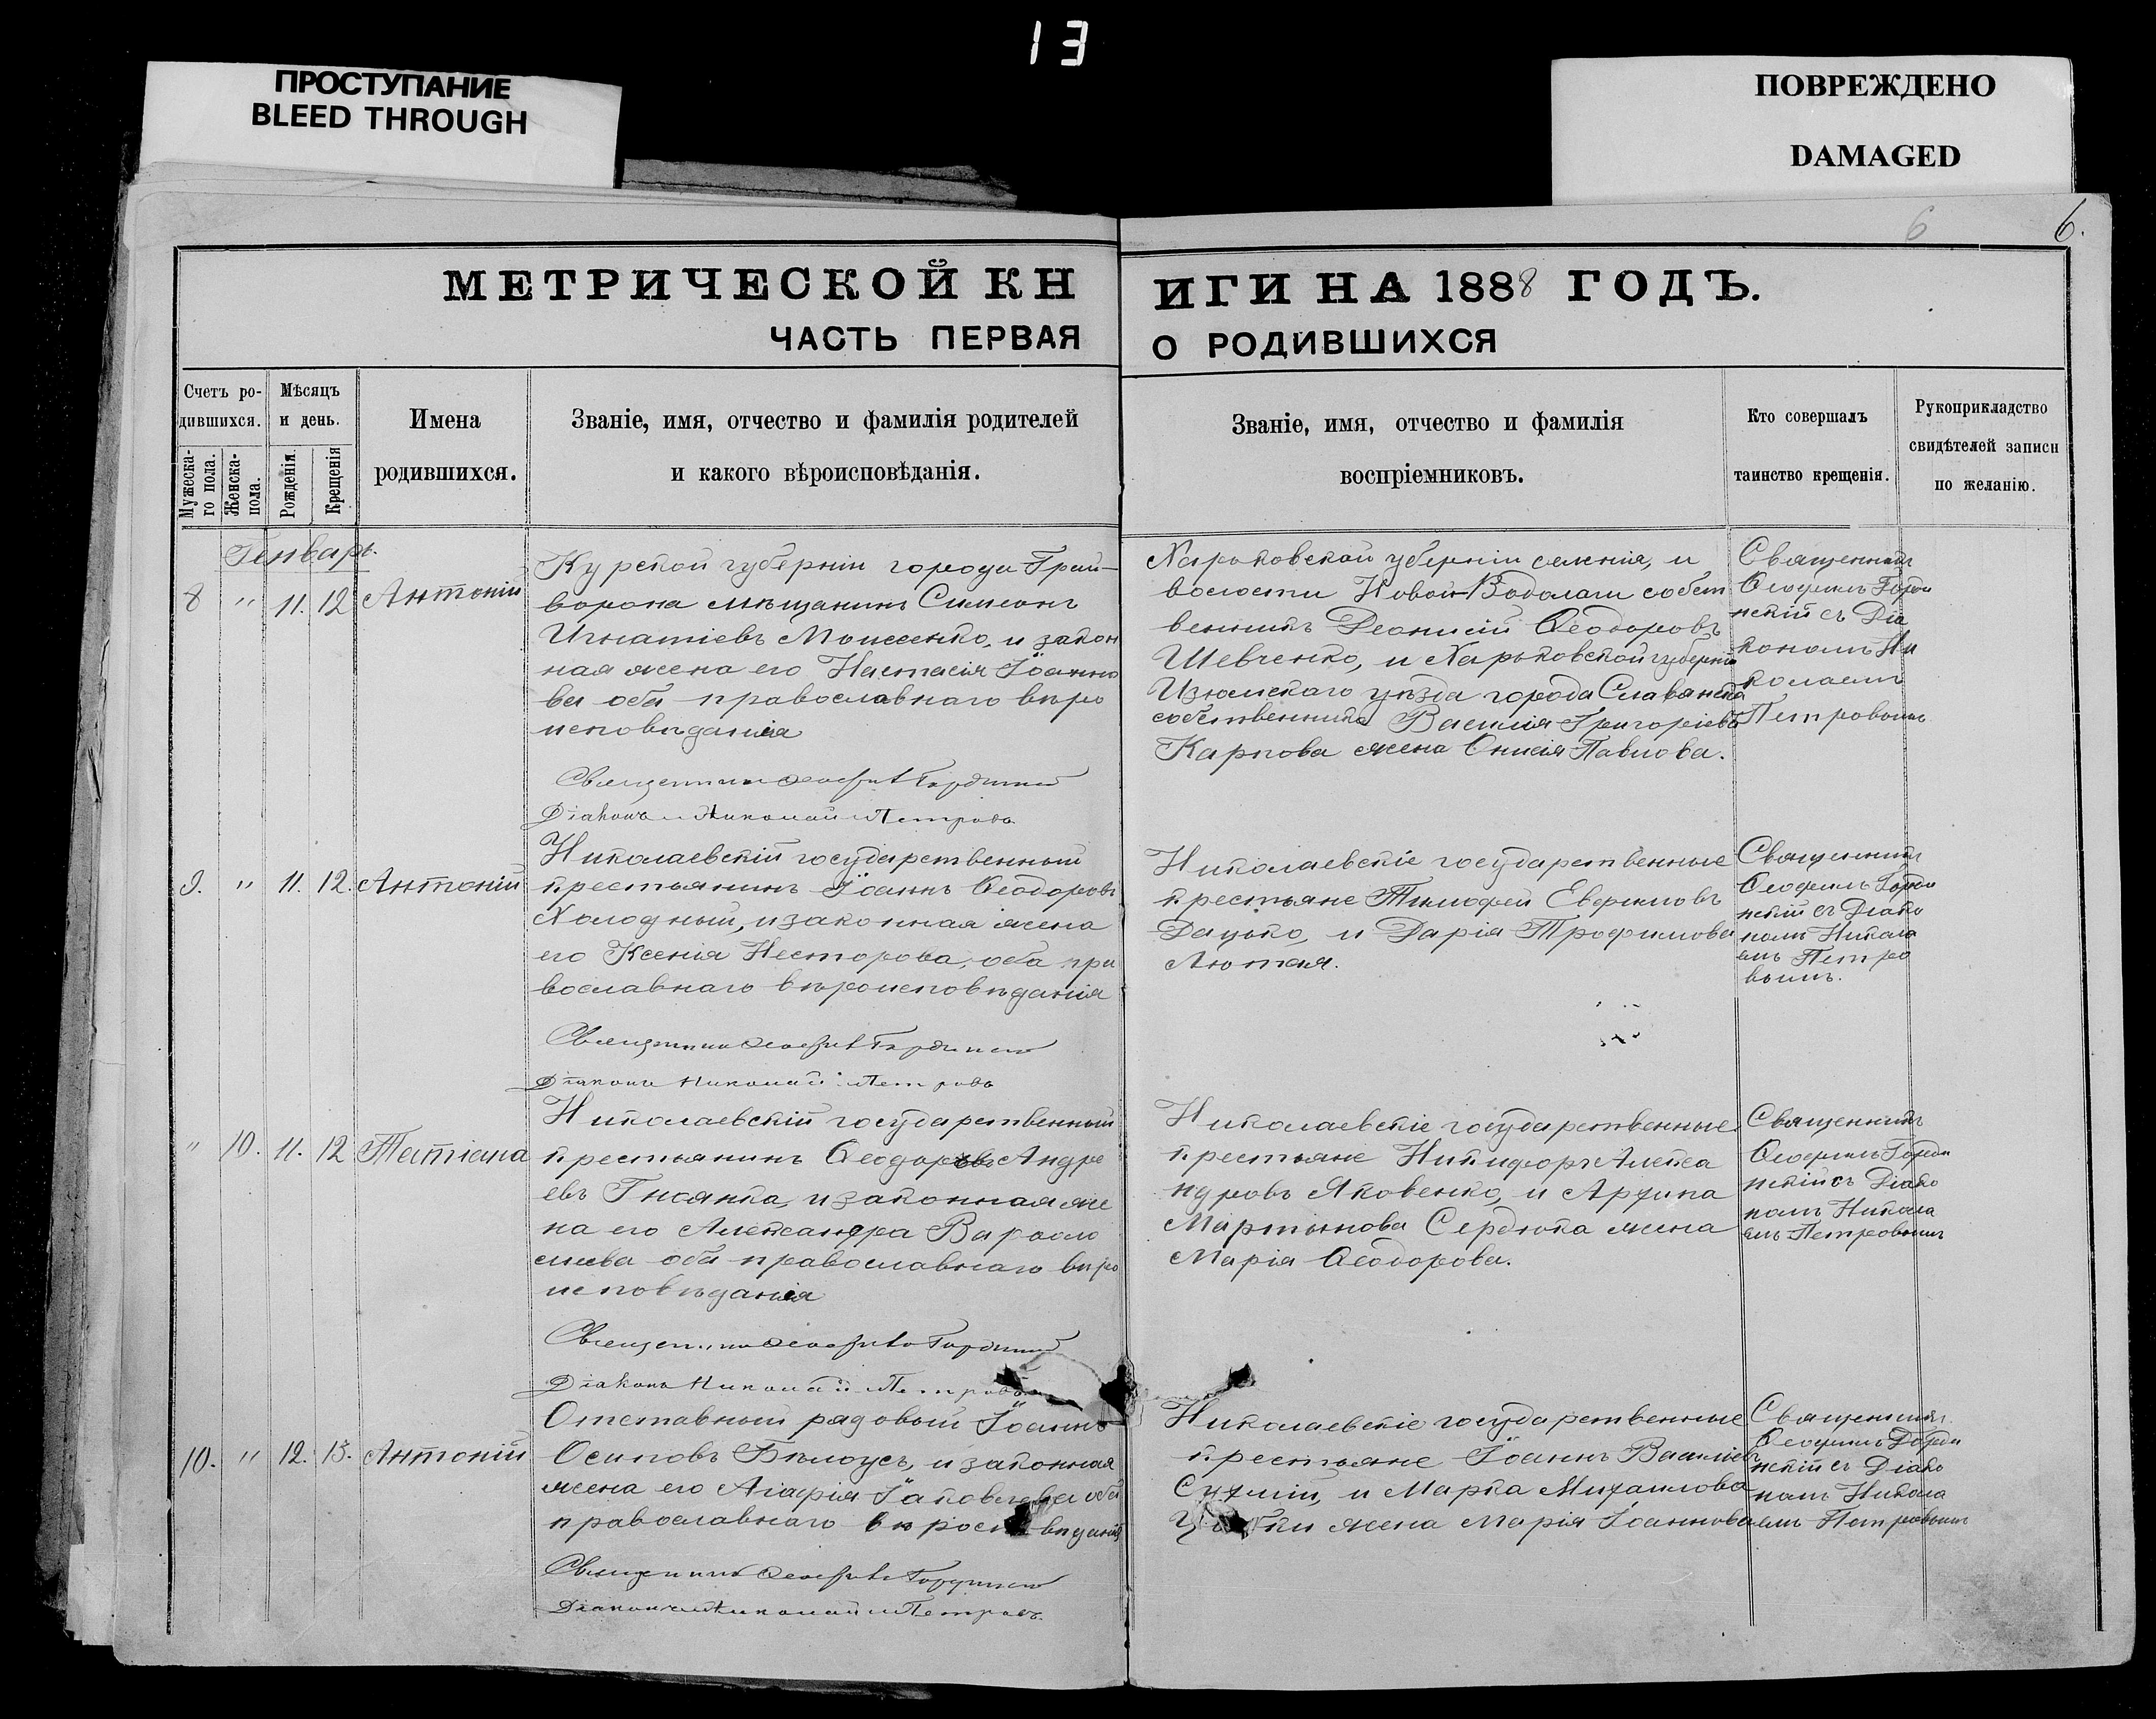 13
ПРОСТУПАНИЕ
BLEED THROUGH
ПОВРЕЖДЕНО
DAMAGED
6 6.
МЕТРИЧЕСКОЙ КНИГИ НА 1888 ГОДЪ.
ЧАСТЬ ПЕРВАЯ О РОДИВШИХСЯ
Счетъ ро-
дившихся.
Мужеска-
го пола.
Женска-
пола.
Мѣсяцъ
и день.
Рожденія.
Крещенія
Имена
родившихся.
Званіе, имя, отчество и фамилія родителей
и какого вѣроисповѣданія.
Званіе, имя, отчество и фамилія
воспріемниковъ.
Кто совершалъ
таинство крещенія.
Рукоприкладство
свидѣтелей записи
по желанію.
Генварь.
8 " 11. 12 Антоній
Курской губерніи города Грай-
ворона мѣщанинъ Симеонъ
Игнатіевъ Моисеенко, и закон
ная жена его Настасія Іоанно
ва оба православнаго вѣро
исповѣданія
Священникъ Ѳеофилъ Гординскій
Діаконъ Николай Петровъ
Харьковской губерніи селенія, и
волости Новой-Водолаги собст
венникъ Деонисій Ѳеодоровъ
Шевченко, и Харьковской губерніи
Изюмскаго уѣзда города Славянска
собственника Василія Григоріева
Карпова жена Онисія Павлова.
Священникъ
Ѳеофилъ Горди
нскій съ Діа
кономъ Ни
колаемъ
Петровымъ
9. " 11. 12. Антоній
Николаевскій государственный
крестьянинъ Іоаннъ Ѳеодоровъ
Холодный, и законная жена
его Ксенія Несторова, оба пра
вославнаго вѣроисповѣданія
Священникъ Ѳеофилъ Гординскій
Діаконъ Николай Петровъ
Николаевскіе государственные
крестьяне Тимофей Евфимовъ
Дацько, и Дарія Трофимова
Лютая.
Священникъ
Ѳеофилъ Горди
нскій съ Діако
номъ Никола
емъ Петро
вымъ.
" 10. 11. 12 Татіана
Николаевскій государственный
крестьянинъ Ѳеодоровъ Андре
евъ Гнсянка, и законная же
на его Александра Варѳоло
меева оба православнаго вѣро
исповѣданія
Священникъ Ѳеофилъ Гординскій
Діаконъ Николай Петровъ
Николаевскіе государственные
крестьяне Никифоръ Алекса
ндровъ Яковенко, и
Мартынова Сердюка жена
Марія Ѳеодорова.
Священникъ
Ѳеофилъ Горди
нскій съ Діако
номъ Никола
емъ Петровымъ
10. " 12. 13. Антоній
Отставный рядовый Іоаннъ
Осиповъ Бѣлоусъ, и законная
жена его Агафія Іаковлева оба
православнаго вѣроисповѣданія
Священникъ Ѳеофилъ Гординскій
Діаконъ Николай Петровъ
Николаевскіе государственные
крестьяне Іоаннъ Васильевъ
и Марка Михаилова
жена Марія Іоаннова
Священникъ
Ѳеофилъ Горди
нскій съ Діако
номъ Никола
емъ Петровымъ